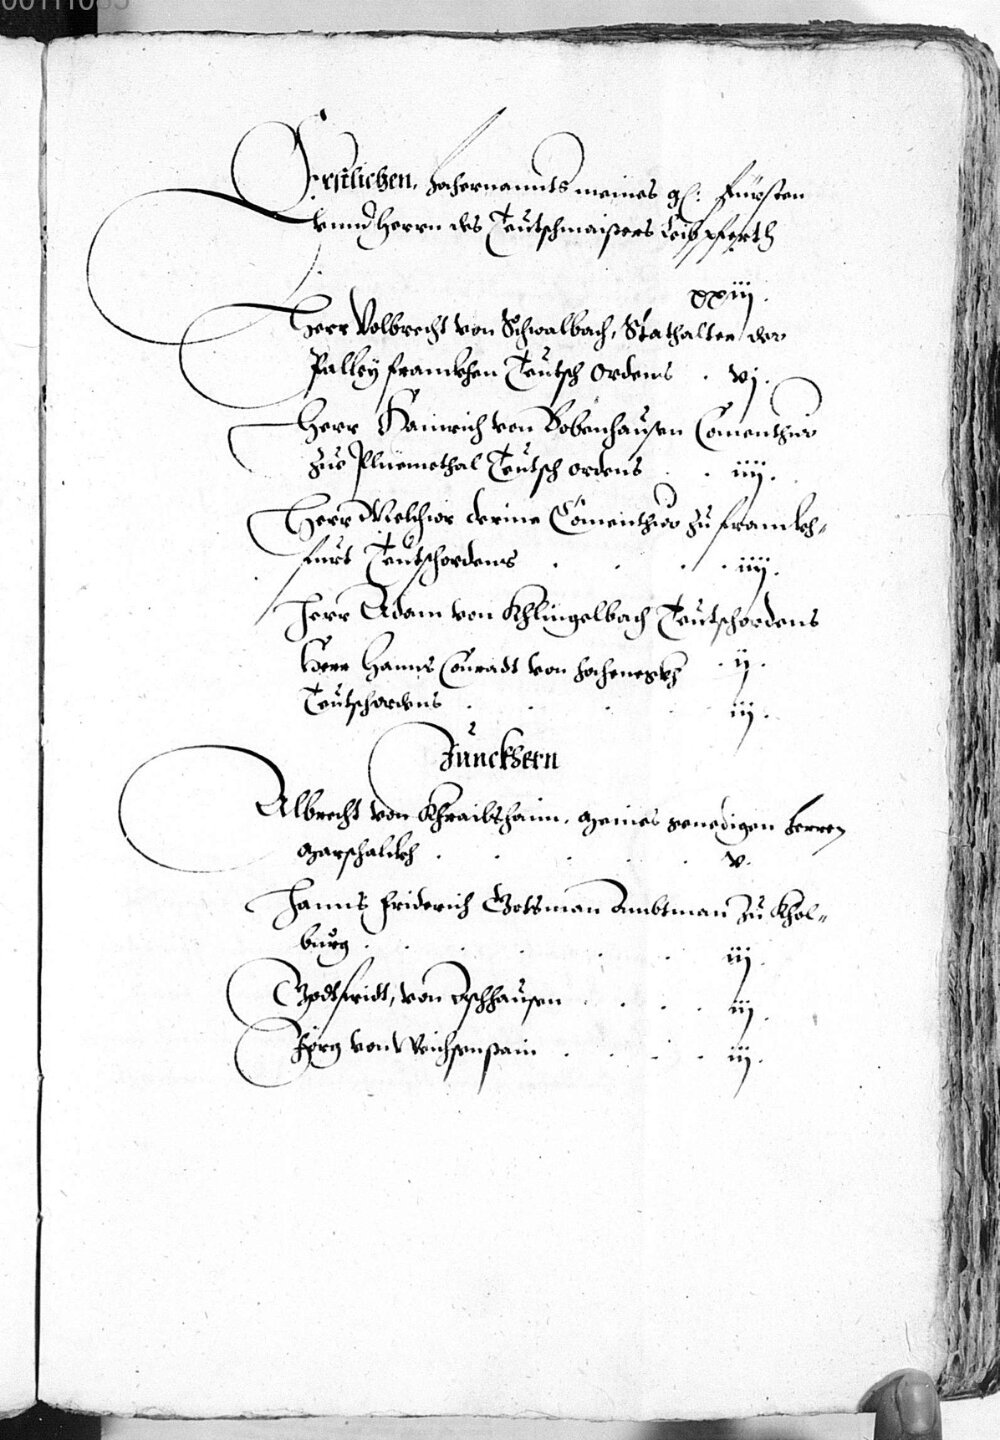 00111085
Erstlichen, hochernannts meines gl: Fürsten
vnnd Herrn des Teutschmaisters Leibpferth
xxiij.
Herr Volbrecht von Schwalbach, Stathalter der
Balley Franckhen Teutsch Ordens . vj.
Herr Hainrich von Bobenhausen Comenthur
zue Pluemethal Teutsch ordens . . iiij.
Herr Melchior Comenthur zu Franckh-
furt Teutschordens . . . . iiij.
Herr Adam von Khlingelbach Teutschordens
. ij.
Herr Hanns Conradt von
Teutschordens . . . . iij.
Junckhern
Albrecht von Khrailshaim, meines genedigen Herren
Marschalckh . . . . v.
Hanns Friderich Gotsman Ambtman zu Khol-
burg . . . . . iij.
Godtfridt, von Eschhausen . . . . iij.
Jörg von Weichsenstain . . . . iij.